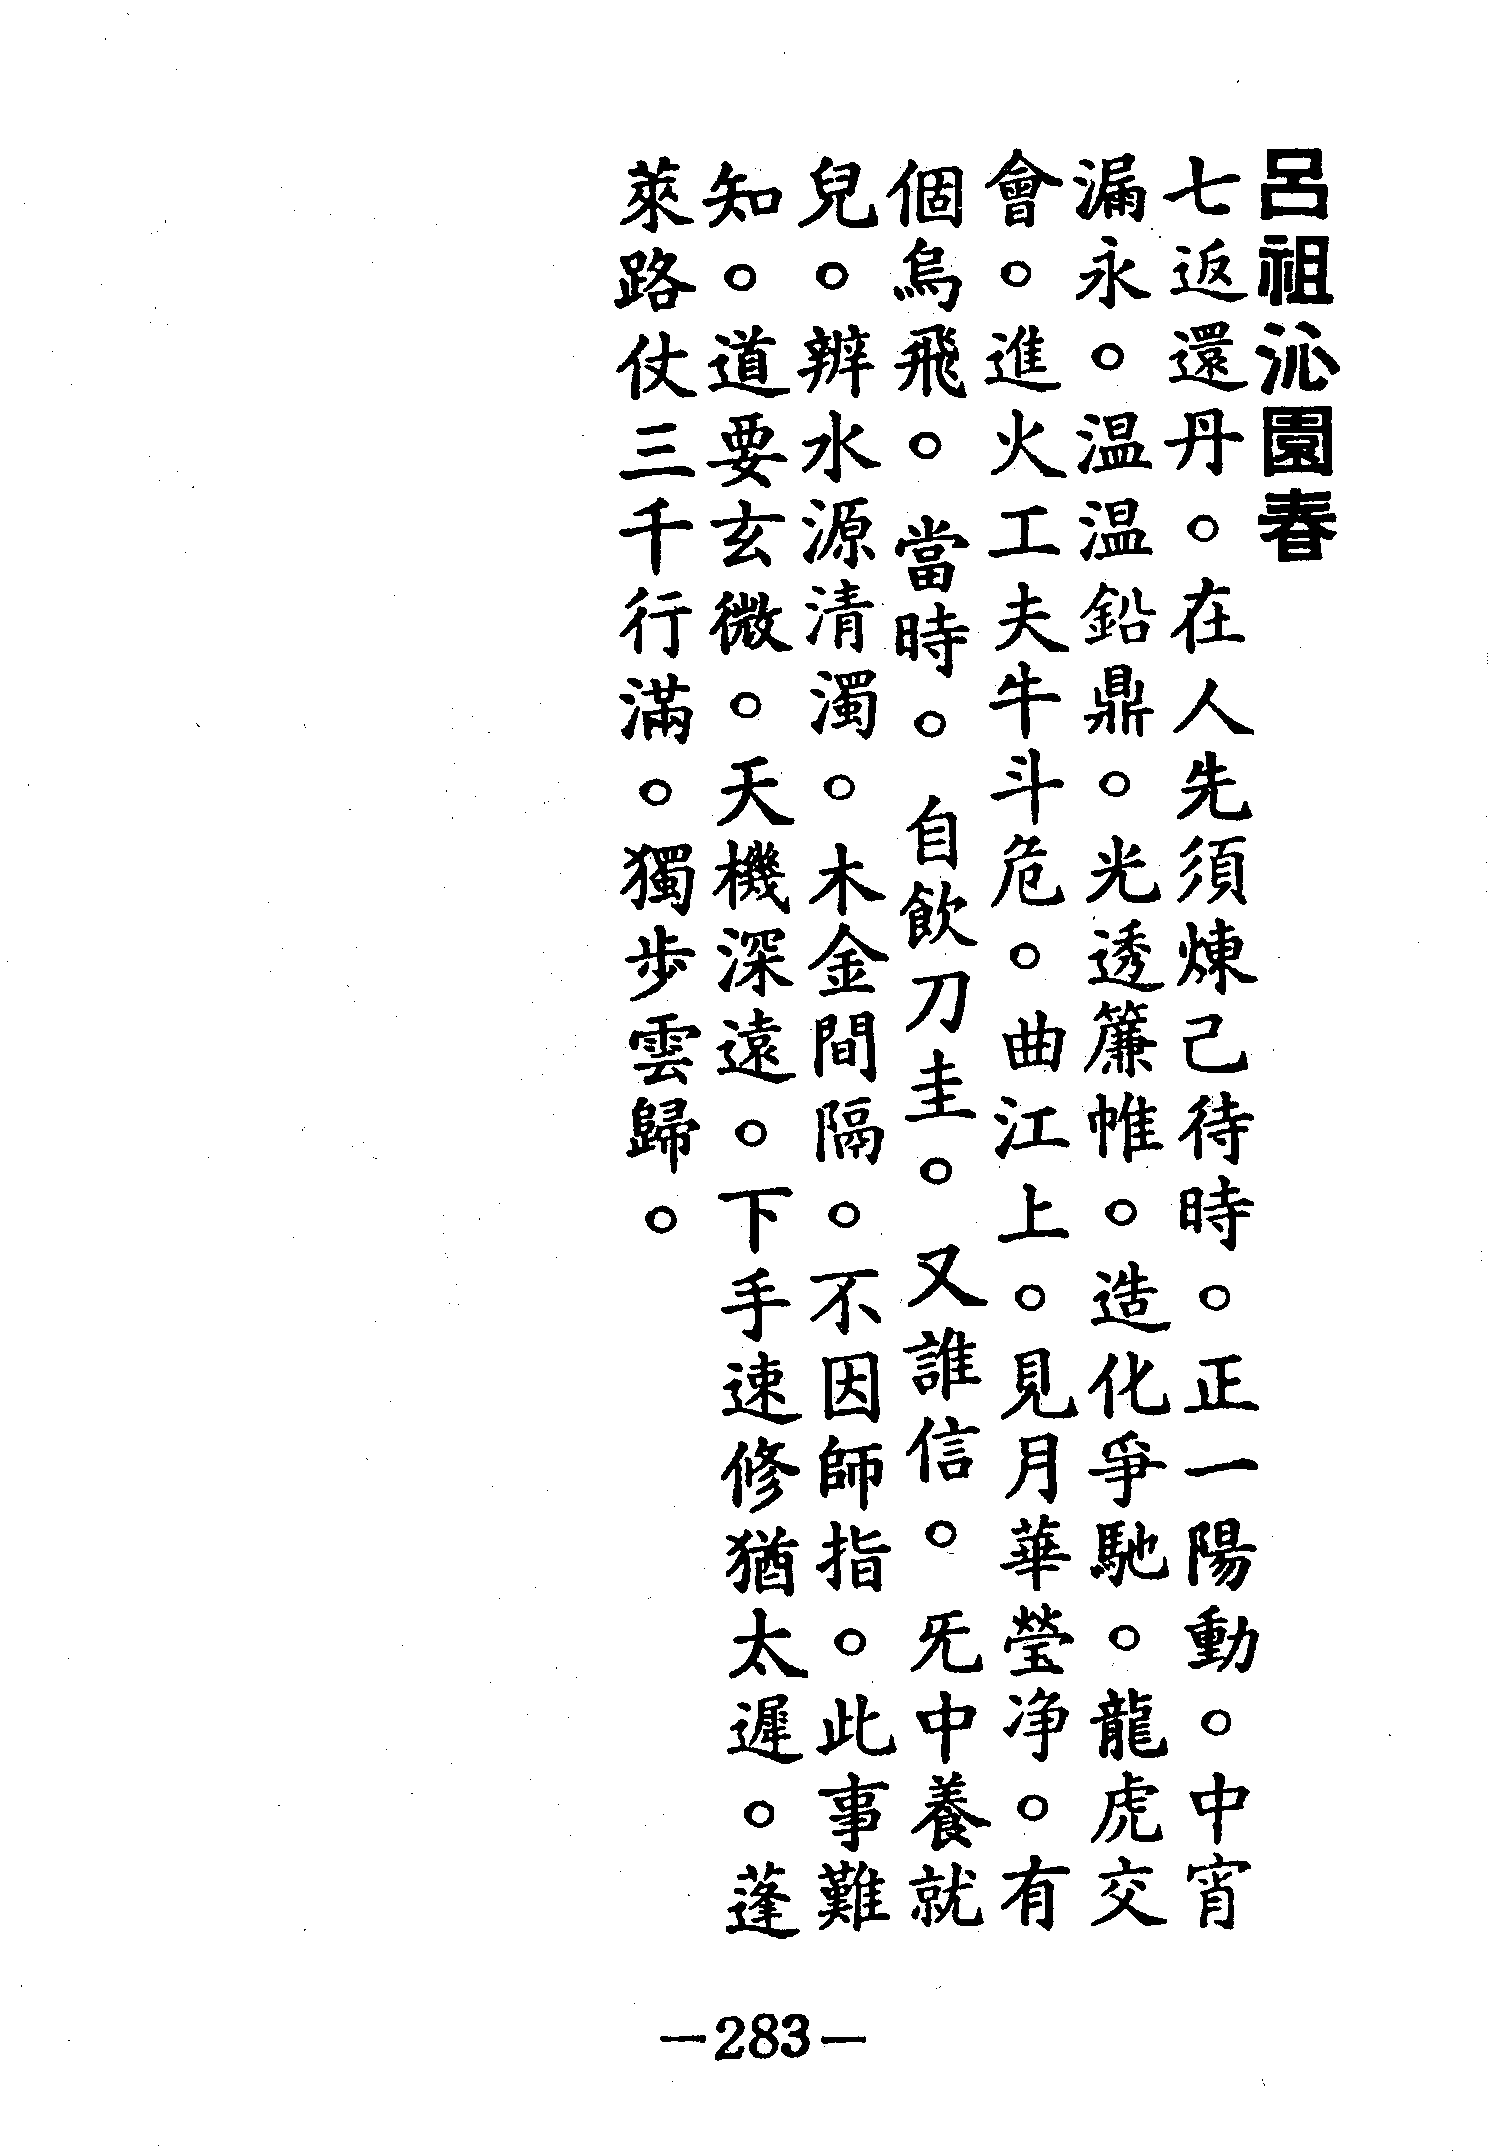 呂祖沁園春
七返還丹。在人先須煉己待時。正一陽動。中宵
漏永。温温鉛鼎。光透簾帷。造化爭馳。龍虎交
會。進火工夫牛斗危。曲江上。見月華瑩净。有
個烏飛。當時。自飲刀圭。又誰信。旡中養就
兒。辨水源清濁。木金間隔。不因師指。此事難
知。道要玄微。天機深遠。下手速修猶太遲。蓬
萊路仗三千行滿。獨步雲歸。
—283—